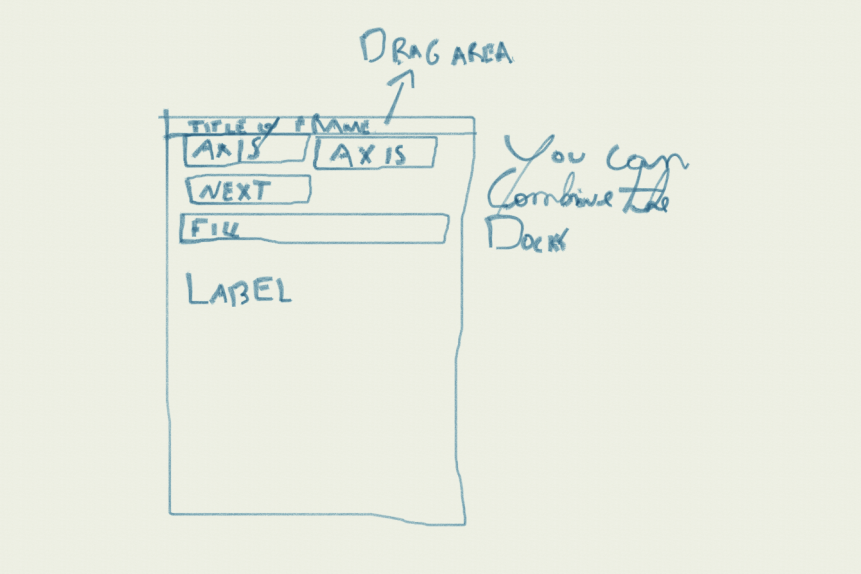 DRAG AREA
TITLE of FRAME
AXIS
AXIS
NEXT
FILL
LABEL
You can
Combine the
Docks